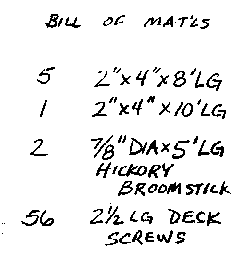 BILL OF MAT'LS
5 2"x4"x8'LG
1 2"x4"x10'LG
2 7/8"DIAx5'LG
HICKORY
BROOMSTICK
56 2½ LG DECK
SCREWS